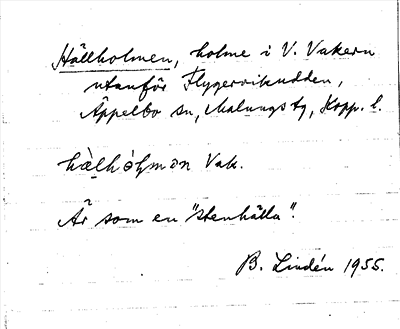 Hällholmen, holme i V. Vakern
utanför Flygervikudden,
Äppelbo sn, Malungs tg, Kopp. l.
Vak.
Är som en "stenhälla".
B. Lindén 1955.